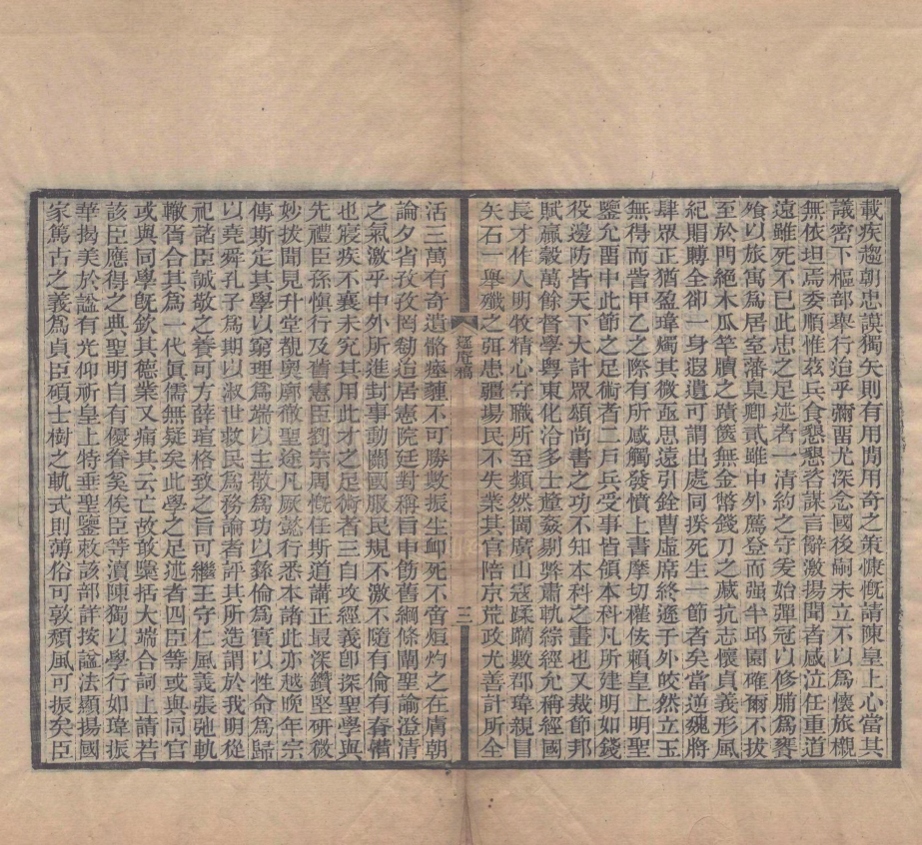 載疾趨朝忠謨獨矢則有用閒用奇之策慷慨請陳皇上心當其
議密下樞部舉行治乎彌畱尤深念國後嗣未立不以爲懷旅櫬
無依坦焉委順惟茲兵食懇懇咨謀言辭激揚聞者感泣任重道
遠雖死不已此忠之足述者一清約之守爰始彈冠以修脯爲饔
飧以旅寓爲居室藩臬卿貳雖中外薦登而强半邱園確爾不拔
至於門絶木瓜竿牘之蹟篋無金幣錢刀之藏抗志懷貞義形風
紀賵賻全卻一身遐遺可謂出處同揆死生一節者矣當逆魏將
肆眾正猶盈瑋燭其微亟思遠引銓曹虛席終遜于外皎然立玉
無得而訾甲乙之際有所感觸發憤上書摩切權侫賴皇上明聖
鑒允畱中此節之足術者二戶兵受事皆領本科凡所建明如錢
役邊防皆天下大計眾頌尚書之功不知本科之書也又裁節邦
賦羸穀萬餘督學粤東化洽多士童蒸剔弊肅軌綜經允稱經國
長才作人明牧精心守職所至類然閩廣山寇蹂躪數郡瑋親冒
矢石一舉殲之弭患疆場民不失業其官陪京荒政尤善計所全
經序稿
三
活三萬有奇遺骼瘞薶不可勝數振生䘏死不啻烜灼之在膚朝
論夕省孜孜罔勌迨居憲院廷對稱旨申飭舊綱條闡聖論澄清
之氣激乎中外所進封事動關國服民規不激不隨有倫有脊惜
也寢疾不襄未究其用此才之足術者三自攻經義卽探聖學與
先禮臣孫愼行及舊憲臣劉宗周慨任斯道講正最深鑽堅研微
妙拔聞見升堂覩奧廓徹聖途凡厥懿行悉本諸此亦越晚年宗
傳斯定其學以窮理爲端以主敬爲功以彝倫爲實以性命爲歸
以堯舜孔子爲期以淑世救民爲務論者評其所造謂於我明從
祀諸臣誠敬之養可方薛瑄格致之旨可繼王守仁風義張弛軌
轍胥合其爲一代眞儒無疑矣此學之足述者四臣等或與同官
或與同學旣欽其德業又痛其云亡故敢櫽括大端合詞上請若
該臣應得之典聖明自有優眷矣俟臣等瀆陳獨以學行如瑋振
華揭美於謚有光仰祈皇上特垂聖鑒敕該部詳按謚法顯揚國
家篤古之義爲貞臣碩士樹之軌式則薄俗可敦頹風可振矣臣